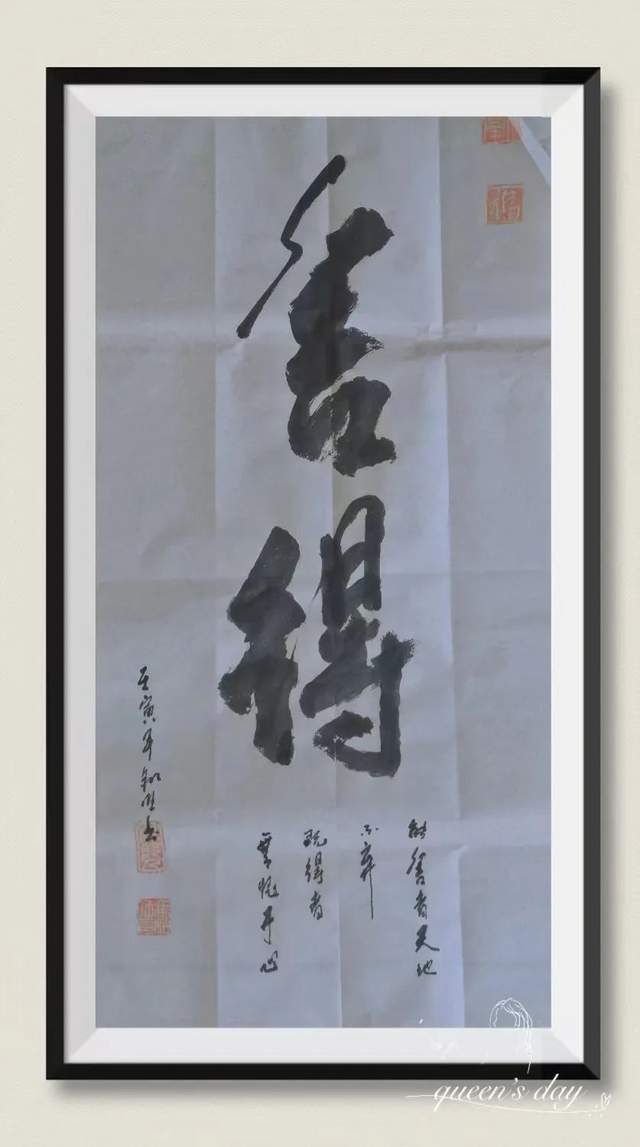 舍得
能舍者天地
不弃
既得者
愧于心
壬寅年书
queen's day